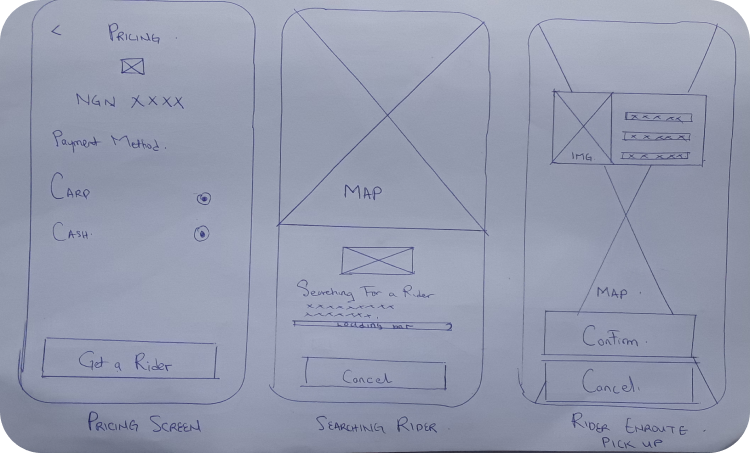 < PRICING.
NGN XXXX
Payment Method.
CARD
CASH.
Get a Rider
PRICING SCREEN
MAP
Searching For a Rider
xxxxxxxxxx
xxxxxxxx.
Loading bar
Cancel
SEARCHING RIDER.
IMG
xxxxx
xxxxx
xxxxx
MAP.
Confirm.
Cancel.
RIDER ENROUTE.
PICK UP